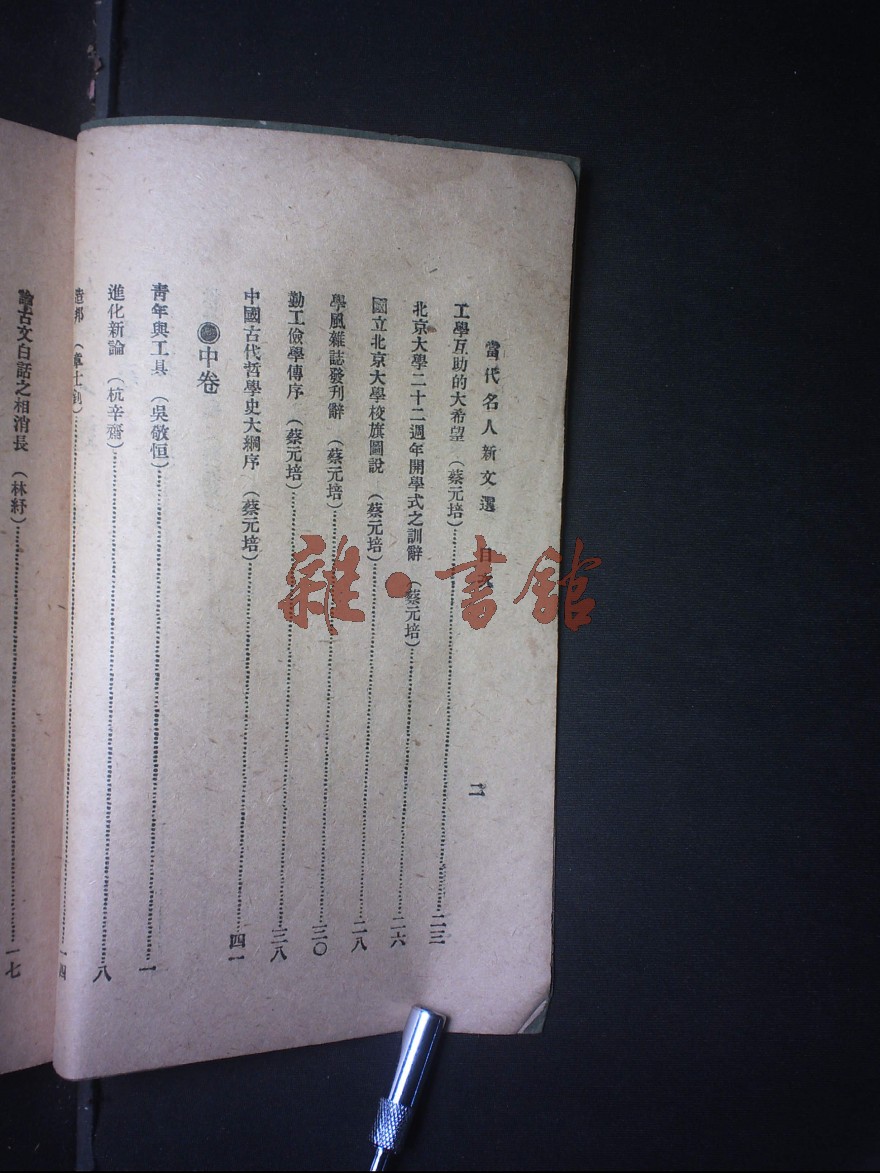 當代名人新文選 目次 二
工學互助的大希望 (蔡元培)……二三
北京大學二十二週年開學式之訓辭 (蔡元培)……二六
國立北京大學校旗圖說 (蔡元培)……二八
學風雜誌發刊辭 (蔡元培)……三〇
勤工儉學傳序 (蔡元培)……三八
中國古代哲學史大綱序 (蔡元培)……四一
●中卷
靑年與工具 (吳敬恒)……一
進化新論 (杭辛齋)……八
造邦 (章士釗)……一四
論古文白話之相消長 (林紓)……一七
雜·書館